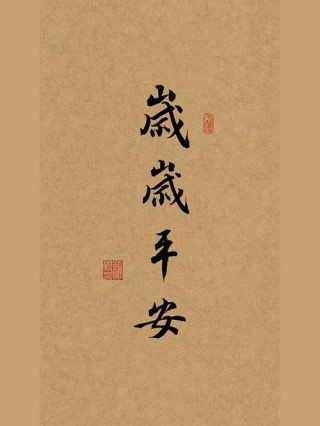 歲歲平安